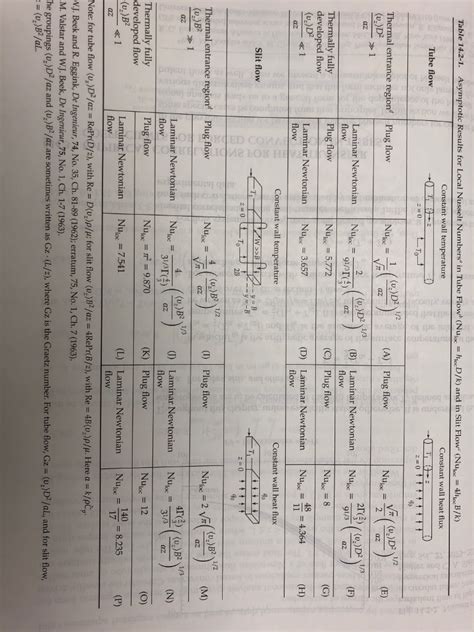 Table 14.2-1. Asymptotic Results for Local Nusselt Numbersᵃ in Tube Flowᵇ (Nu_loc = h_loc D/k) and in Slit Flowᶜ (Nu_loc = 4h_loc B/k)
Tube flow
Constant wall temperature
Constant wall heat flux
z = 0
z = 0
Thermal entrance regionᵈ
⟨v_z⟩D²/αz >> 1
Plug flow
Nu_loc = 1/√π (⟨v_z⟩D²/αz)^1/2 (A)
Plug flow
Nu_loc = √π/2 (⟨v_z⟩D²/αz)^1/2 (E)
Laminar Newtonian flow
Nu_loc = 2/(9^1/3 Γ(4/3)) (⟨v_z⟩D²/αz)^1/3 (B)
Laminar Newtonian flow
Nu_loc = 2Γ(2/3)/9^1/3 (⟨v_z⟩D²/αz)^1/3 (F)
Thermally fully developed flow
⟨v_z⟩D²/αz << 1
Plug flow
Nu_loc = 5.772 (C)
Plug flow
Nu_loc = 8 (G)
Laminar Newtonian flow
Nu_loc = 3.657 (D)
Laminar Newtonian flow
Nu_loc = 48/11 = 4.364 (H)
Slit flow
Constant wall temperature
Constant wall heat flux
y = B
y = −B
2B
z = 0
z = 0
Thermal entrance regionᵈ
⟨v_z⟩B²/αz >> 1
Plug flow
Nu_loc = 4/√π (⟨v_z⟩B²/αz)^1/2 (I)
Plug flow
Nu_loc = 2√π (⟨v_z⟩B²/αz)^1/2 (M)
Laminar Newtonian flow
Nu_loc = 4/(3^1/3 Γ(4/3)) (⟨v_z⟩B²/αz)^1/3 (J)
Laminar Newtonian flow
Nu_loc = 4Γ(2/3)/3^1/3 (⟨v_z⟩B²/αz)^1/3 (N)
Thermally fully developed flow
⟨v_z⟩B²/αz << 1
Plug flow
Nu_loc = π² = 9.870 (K)
Plug flow
Nu_loc = 12 (O)
Laminar Newtonian flow
Nu_loc = 7.541 (L)
Laminar Newtonian flow
Nu_loc = 140/17 = 8.235 (P)
Note: for tube flow ⟨v_z⟩D²/αz = RePr(D/z), with Re = D⟨v_z⟩ρ/μ; for slit flow ⟨v_z⟩B²/αz = 4RePr(B/z), with Re = 4B⟨v_z⟩ρ/μ. Here α = k/ρĈ_p.
W.J. Beek and R. Eggink, De Ingenieur, 74, No. 35, Ch. 81-89 (1962); erratum, 75, No. 1, Ch. 7 (1963).
M. Valstar and W.J. Beek, De Ingenieur, 75, No. 1, Ch. 1-7 (1963).
The groupings ⟨v_z⟩D²/αz and ⟨v_z⟩B²/αz are sometimes written as Gz · (L/z), where Gz is the Graetz number. For tube flow, Gz = ⟨v_z⟩D²/αL, and for slit flow,
= ⟨v_z⟩B²/αL.